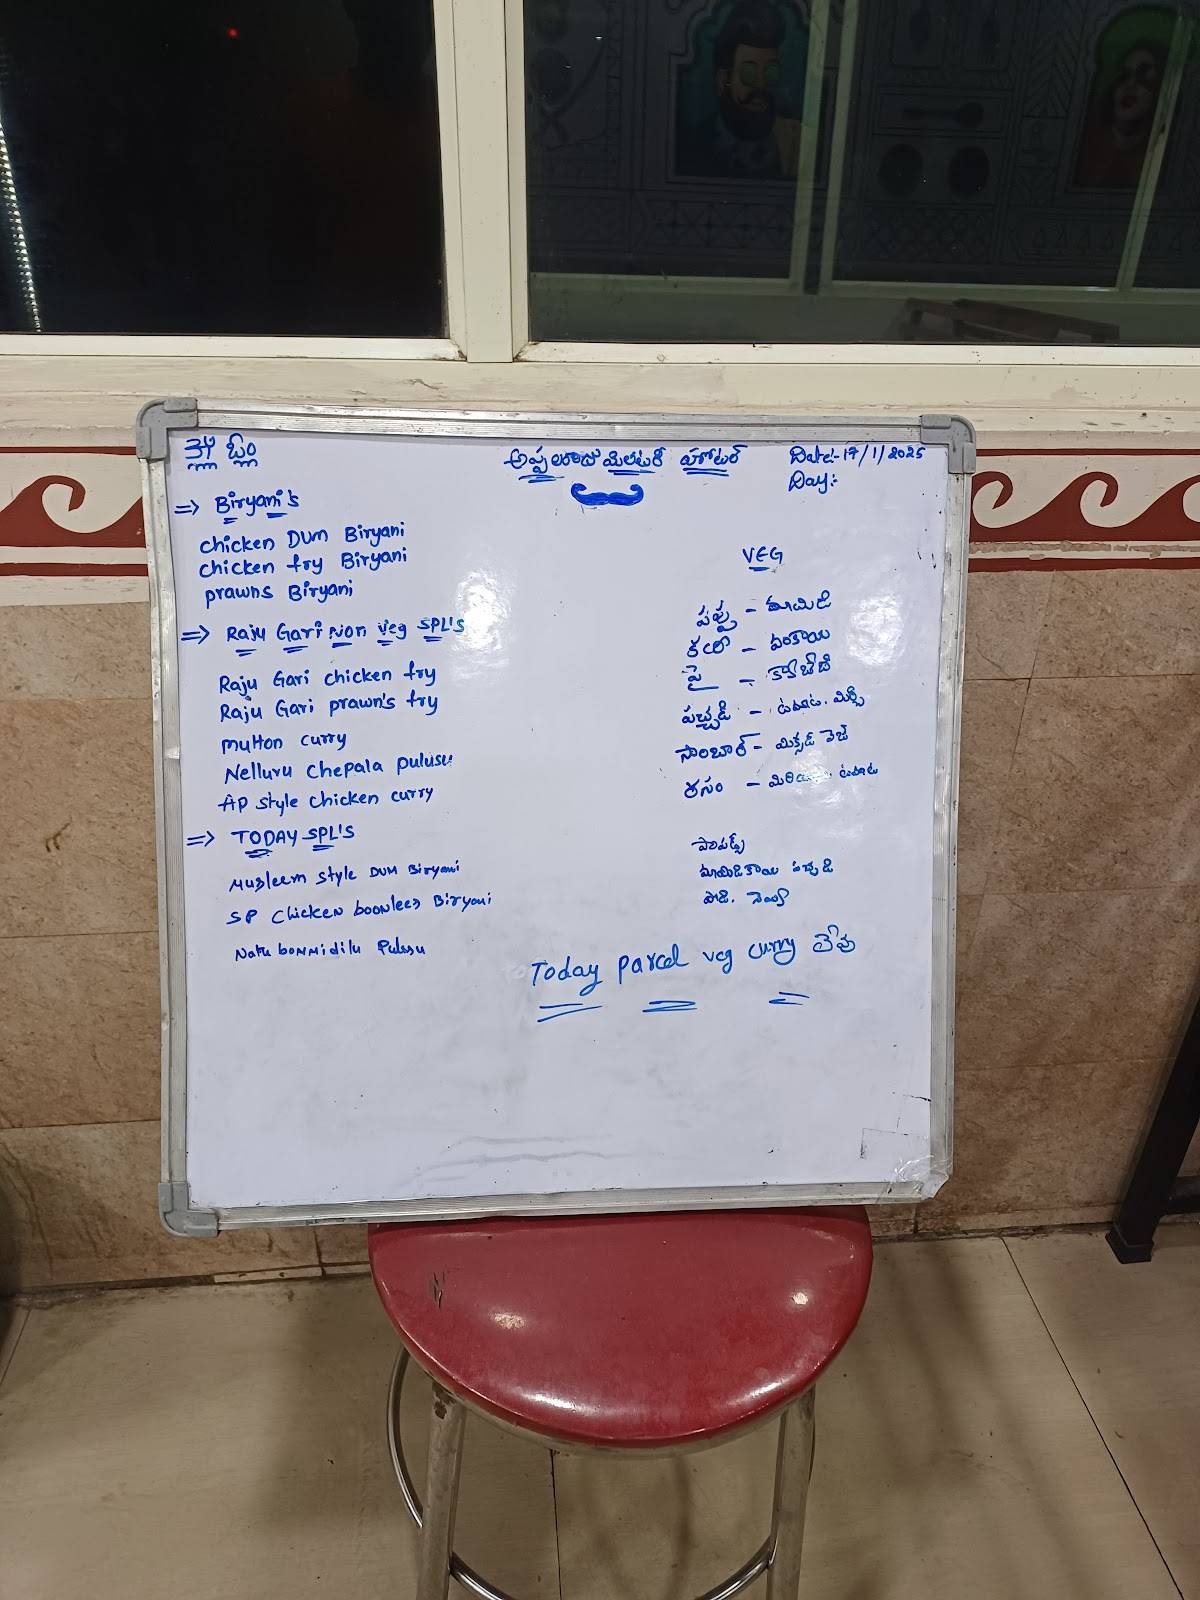 అప్పలరాజు మిలటరీ హోటల్
Date:- 17/1/2025
Day:-
=> Biryani's
chicken Dum Biryani
chicken fry Biryani
prawns Biryani
=> Raju Gari Non Veg SPL'S
Raju Gari chicken fry
Raju Gari prawn's fry
mutton curry
Nelluru chepala pulusu
AP style chicken curry
=> TODAY SPL'S
Muzleem style DUM Biryani
SP Chicken boonless Biryani
Natu bommidilu Pulusu
VEG
పప్పు - మామిడి
కర్రీ - వంకాయ
ఫ్రై - క్యాబేజీ
పచ్చడి - టమాట. మిర్చి
సాంబార్ - మిక్సడ్ వెజ్
రసం - మిరియాల టమాట
మామిడికాయ పచ్చడి
పొడి. నెయ్యి
Today parcel veg curry లేవు